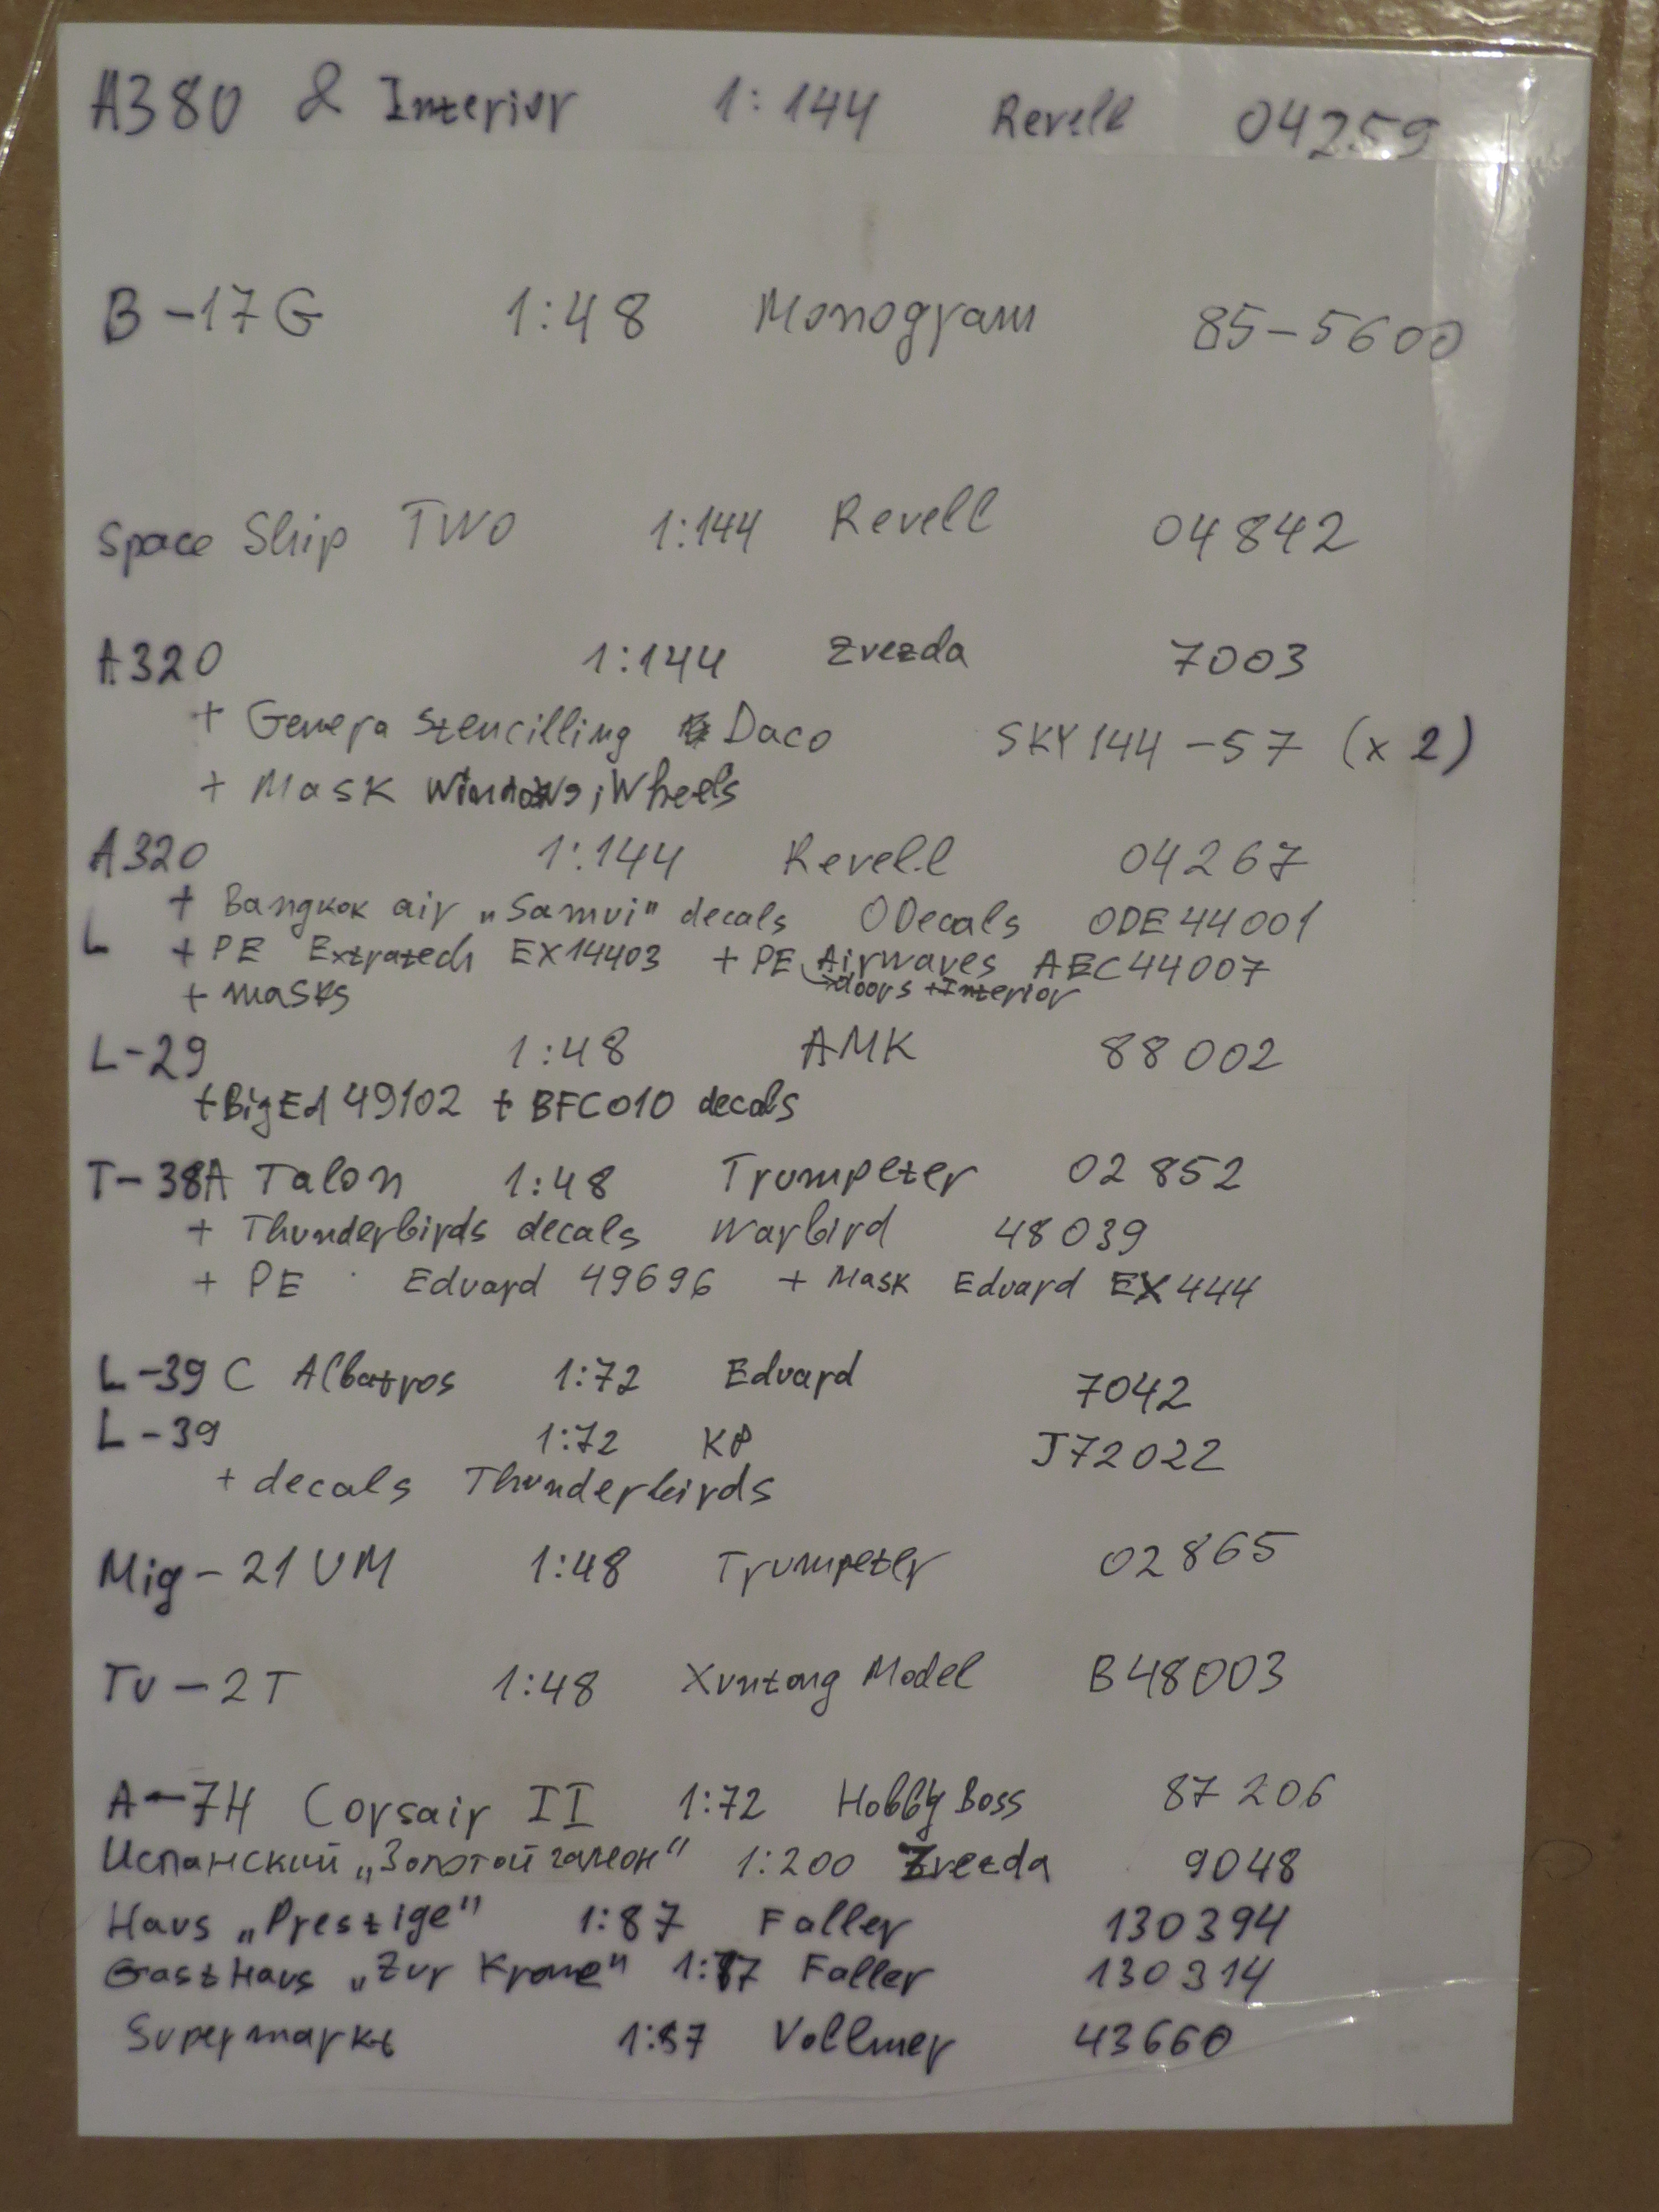 A380 & Interior 1:144 Revell 04259
B-17G 1:48 Monogram 85-5600
Space Ship TWO 1:144 Revell 04842
A320 1:144 Zvezda 7003
+ Genera Stencilling Daco SKY144-57 (x2)
+ Mask Windows, Wheels
A320 1:144 Revell 04267
+ Bangkok air „Samui" decals ODecals ODE44001
L + PE Extratech EX14403 + PE Airwaves AEC44007
+ masks →doors +Interior
L-29 1:48 AMK 88002
+BigEd 49102 + BFC010 decals
T-38A Talon 1:48 Trumpeter 02852
+ Thunderbirds decals Warbird 48039
+ PE Eduard 49696 + Mask Eduard EX444
L-39C Albatros 1:72 Eduard 7042
L-39 1:72 KP J72022
+ decals Thunderbirds
Mig-21UM 1:48 Trumpeter 02865
Tu-2T 1:48 Xuntong Model B48003
A-7H Corsair II 1:72 Hobby Boss 87206
Испанский „Золотой галеон" 1:200 Zvezda 9048
Haus „Prestige" 1:87 Faller 130394
GastHaus „Zur Krone" 1:87 Faller 130314
Supermarkt 1:87 Vollmer 43660